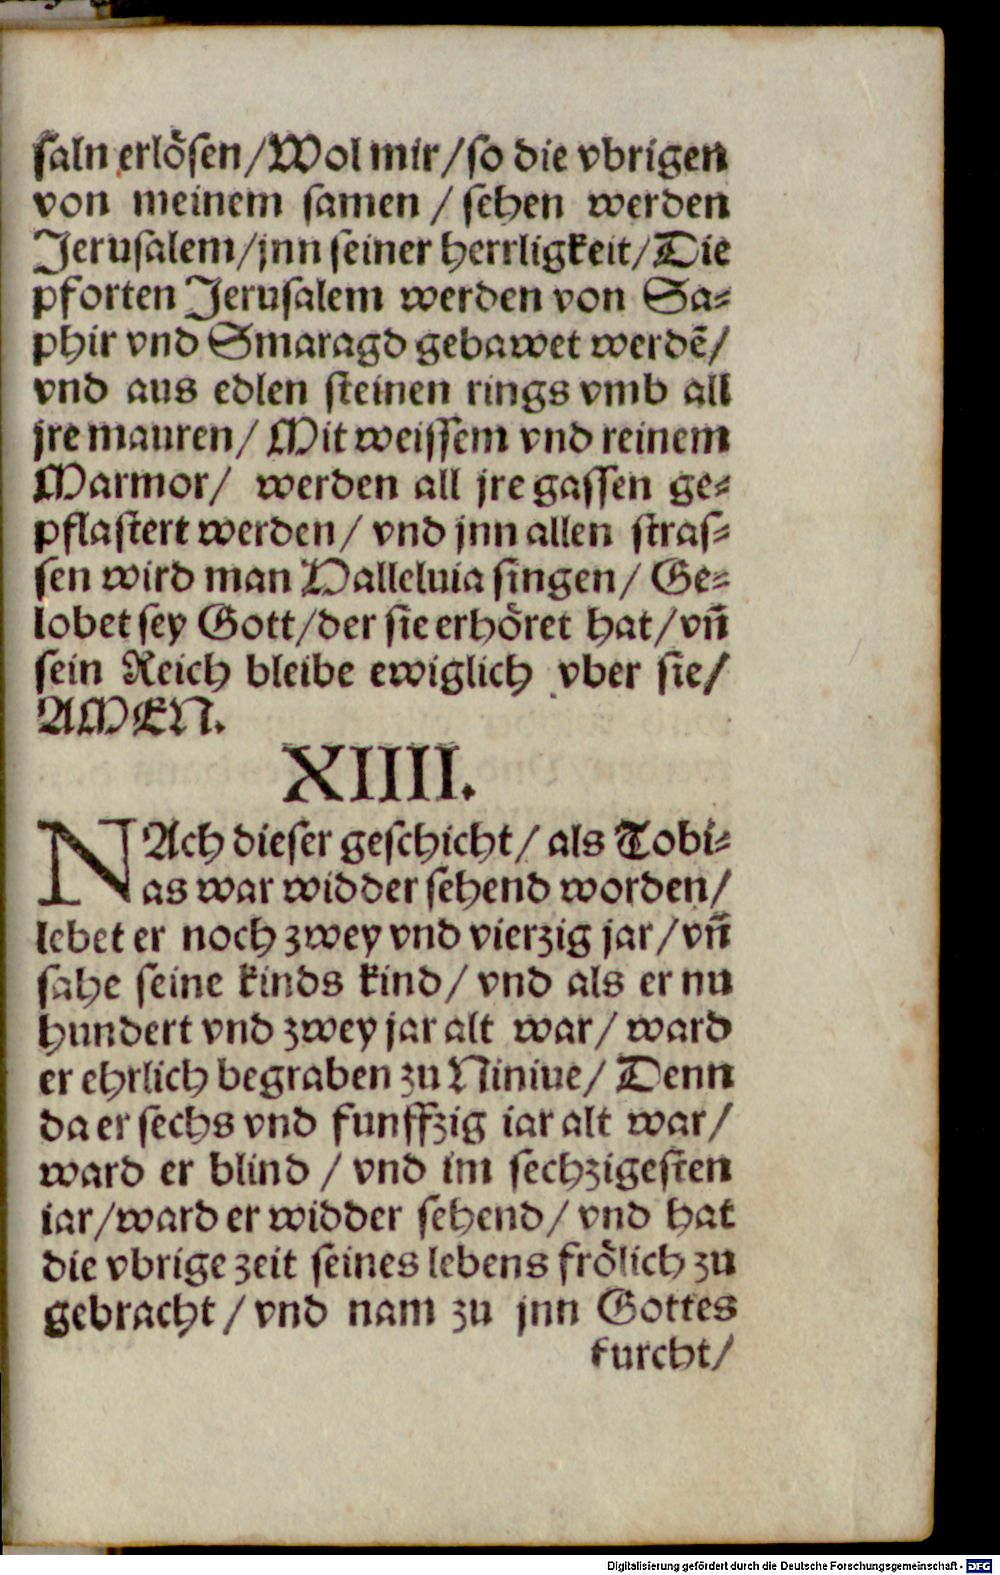 saln erlösen/Wol mir/so die vbrigen
von meinem samen / sehen werden
Jerusalem/jnn seiner herrligkeit/Die
pforten Jerusalem werden von Sa-
phir vnd Smaragd gebawet werdẽ/
vnd aus edlen steinen rings vmb all
jre mauren/ Mit weissem vnd reinem
Marmor/ werden all jre gassen ge-
pflastert werden/ vnd jnn allen stras-
sen wird man Halleluia singen/ Ge-
lobet sey Gott/der sie erhöret hat/vn̄
sein Reich bleibe ewiglich vber sie/
AMEN.
XIIII.
NAch dieser geschicht/ als Tobi-
as war widder sehend worden/
lebet er noch zwey vnd vierzig jar/vn̄
sahe seine kinds kind/ vnd als er nu
hundert vnd zwey jar alt war/ ward
er ehrlich begraben zu Niniue/ Denn
da er sechs vnd funffzig iar alt war/
ward er blind / vnd im sechzigesten
iar/ward er widder sehend/ vnd hat
die vbrige zeit seines lebens frölich zu
gebracht / vnd nam zu jnn Gottes
furcht/
Digitalisierung gefördert durch die Deutsche Forschungsgemeinschaft - DFG